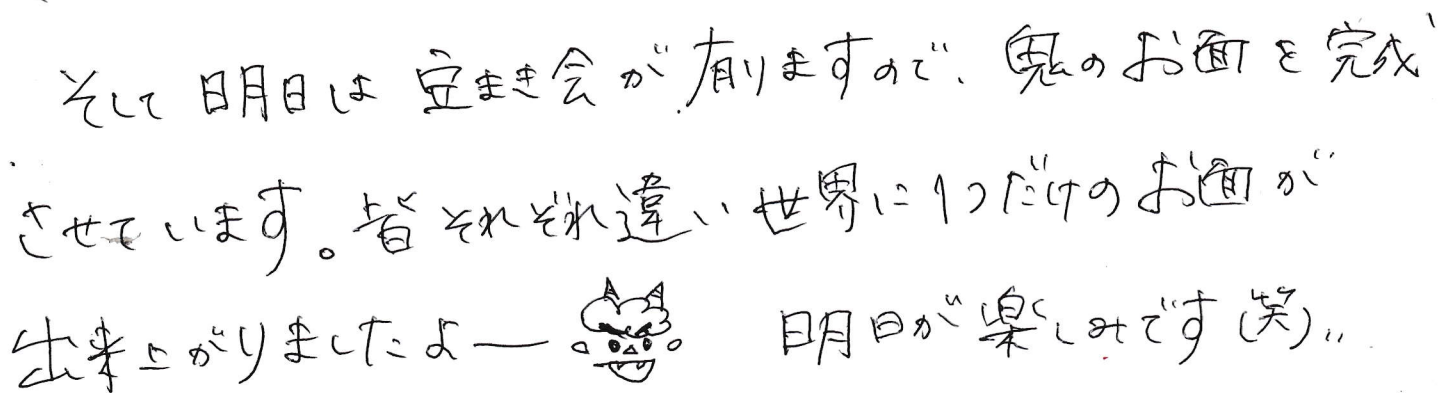 そして明日は豆まき会が有りますので、鬼のお面を完成
させています。皆それぞれ違い世界に1つだけのお面が
出来上がりましたよー 明日が楽しみです(笑)..